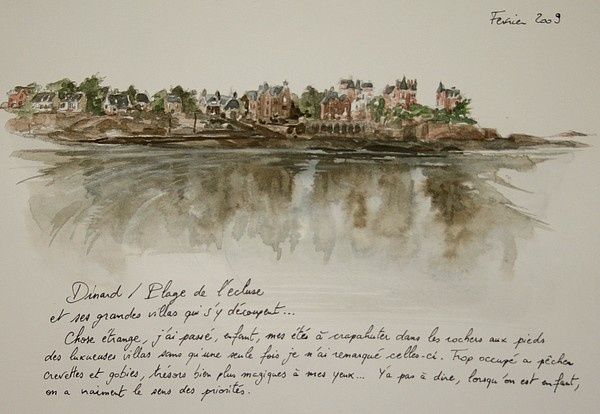 Février 2009
Dinard / Plage de l'écluse
et ses grandes villas qui s'y découpent...
Chose étrange, j'ai passé, enfant, mes étés à crapahuter dans les rochers aux pieds
des luxueuses villas sans qu'une seule fois je n'ai remarqué celles-ci. Trop occupé a pêcher
crevettes et gobies, trésors bien plus magiques à mes yeux... Y'a pas à dire, lorsqu'on est enfant,
on a vraiment le sens des priorités.